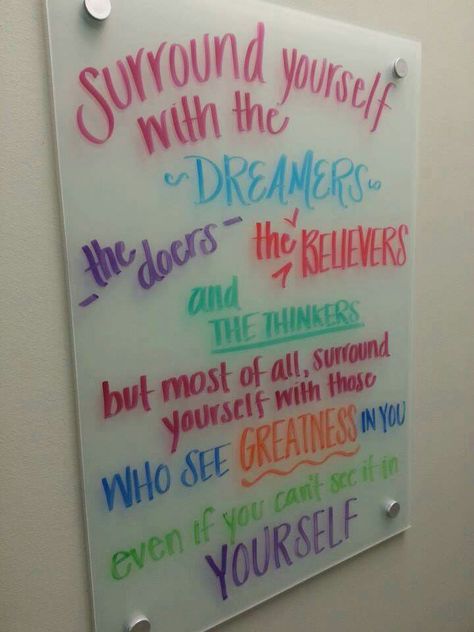 Surround yourself
with the
~DREAMERS~
the doers- the BELIEVERS
and
THE THINKERS
but most of all, surround
yourself with those
WHO SEE GREATNESS IN YOU
even if you can't see it in
YOURSELF